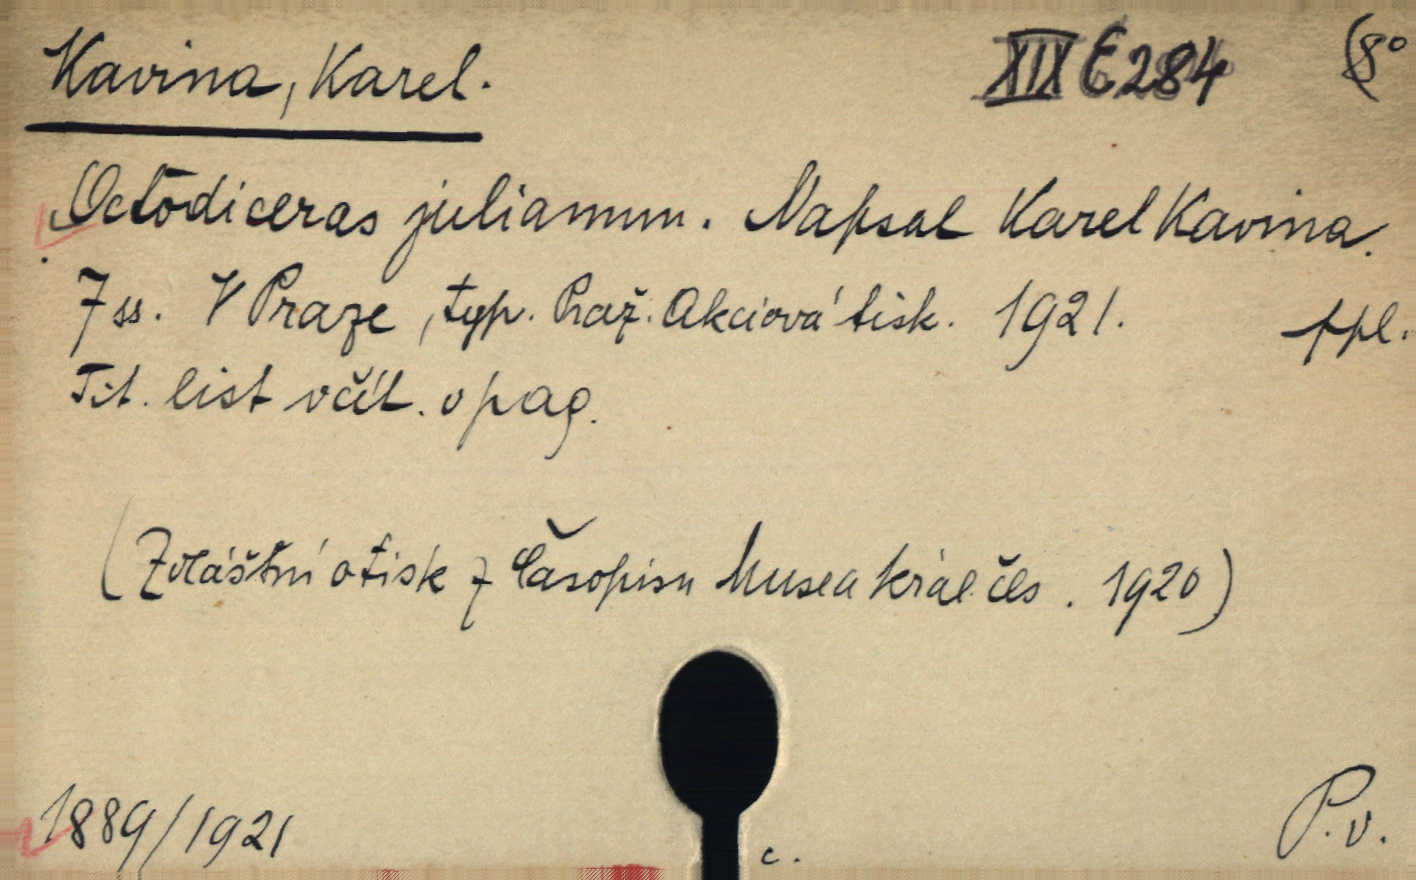 Kavina, Karel. XIX E 284 (8°
Octodiceras julianum. Napsal Karel Kavina.
7 ss. V Praze, typ. Praž. Akciová tisk. 1921. ppl.
Tit. list včít. v pag.
(Zvláštní otisk z Časopisu Musea král. čes. 1920)
1889/1921
c.
P. v.